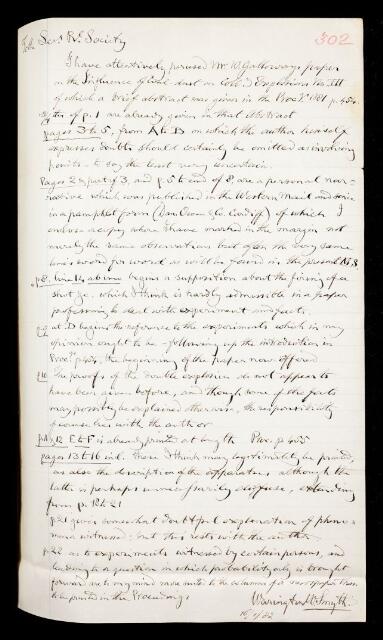 To the Secs Rl. Society
302
I have attentively perused Mr. W. Galloway's paper
on the Influence of Coal dust on Coll.y Explosions No. III
of which a brief abstract was given in the Proc. 1881 p. 454.
of p. 1 are already given in that Abstract
pages 3 to 5, from A to B on which the author himself
expresses doubts should certainly be omitted as involving
points - to say the least very uncertain.
Pages 2 & part of 3, and p. 5 to end of 8, are a personal nar-
rative which was published in the Western Mail and since
in a pamphlet form (Dan Owen & Co. Cardiff) of which I
enclose a copy where I have marked in the margin not
merely the same observations but often the very same
lines word for word as will be found in the present
p 8. line 12 above begins a supposition about the firing of a
shot &c. which I think is hardly admissible in a paper
professing to deal with experiment and facts.
at D begins the reference to the experiments which in my
opinion ought to be - following up the introduction in
Proc. p 454, the beginning of the paper now offered
p 10 The proofs of the double explosion do not appear to
have been given before, and though some of the facts
may possibly be explained otherwise, the responsibility
of course lies with the author
p 11, 12 E to F is already printed at length Proc. p. 455
pages 13 to 16 incl. these I think may legitimately be printed,
as also the description of the apparatus although the
latter is perhaps unnecessarily diffuse, extending
from p. 18 to 21
p 21 gives somewhat doubtful explanation of pheno-
mena witnessed: but this rests with the author
p 22 as to experiments witnessed by certain persons, and
leading to a question in which probability only is brought
forward are to my mind more suited to the columns of a newspaper than
to be printed in the Proceedings
Warington W. Smyth